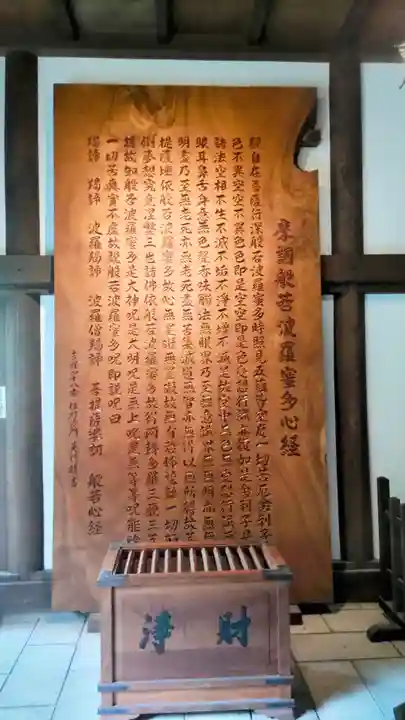 摩訶般若波羅蜜多心経
觀自在菩薩行深般若波羅蜜多時照見五蘊皆空度一切苦厄舎利子
色不異空空不異色色即是空空即是色受想行識亦復如是舎利子是
諸法空相不生不滅不垢不淨不增不減是故空中無色無受想行識無
眼耳鼻舌身意無色聲香味觸法無眼界乃至無意識界無無明亦無無
明盡乃至無老死亦無老死盡無苦集滅道無智亦無得以無所得故菩
提薩埵依般若波羅蜜多故心無罣礙無罣礙故無有恐怖遠離一切顛
倒夢想究竟涅槃三世諸佛依般若波羅蜜多故得阿耨多羅三藐三菩
提故知般若波羅蜜多是大神呪是大明呪是無上呪是無等等呪能除
一切苦真實不虚故説般若波羅蜜多呪即説呪曰
羯諦 羯諦 波羅羯諦 波羅僧羯諦 菩提薩婆訶 般若心経
浄財